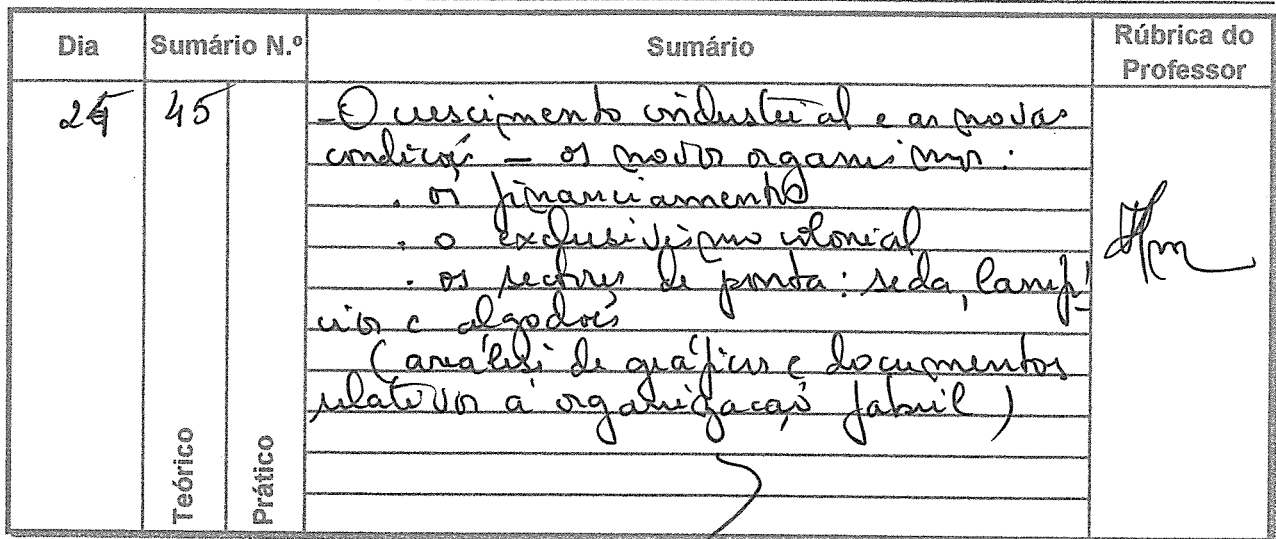 Dia Sumário N.º Sumário Rúbrica do Professor
45
- O crescimento industrial e as novas
condições - os novos organismos:
. os financiamentos
. o exclusivismo colonial
. os sectores de ponta: seda, lanifí-
cios e algodões
(análise de gráficos e documentos
relativos à organização fabril)
Teórico Prático